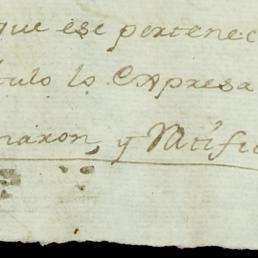 que ese pertenec
tulo lo Expresa
naron, y Ratific